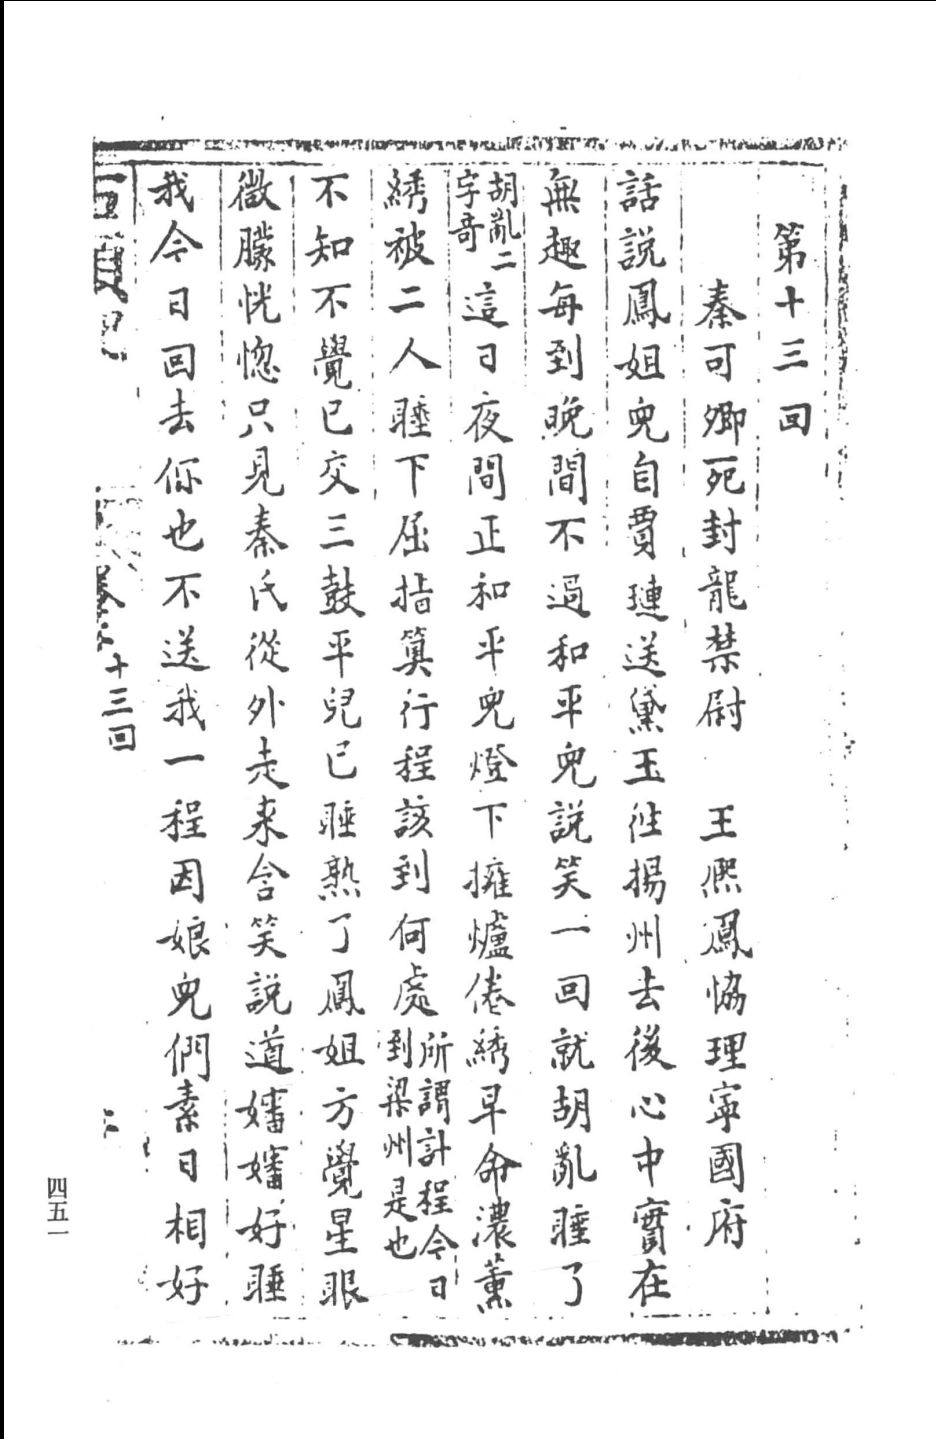 第十三回
秦可卿死封龍禁尉 王熈鳳恊理寧國府
話說鳳姐兒自賈璉送黛玉徃揚州去後心中實在
無趣每到晚間不過和平兒説笑一回就胡亂睡了
胡亂二字奇這日夜間正和平兒燈下擁爐倦綉早命濃薰
綉被二人睡下屈指算行程該到何處所謂計程今日到梁州是也
不知不覺已交三鼓平兒已睡熟了鳳姐方覺星眼
微朦恍惚只見秦氏從外走來含笑說道嬸嬸好睡
我今日回去你也不送我一程因娘兒們素日相好
十三回
四五一